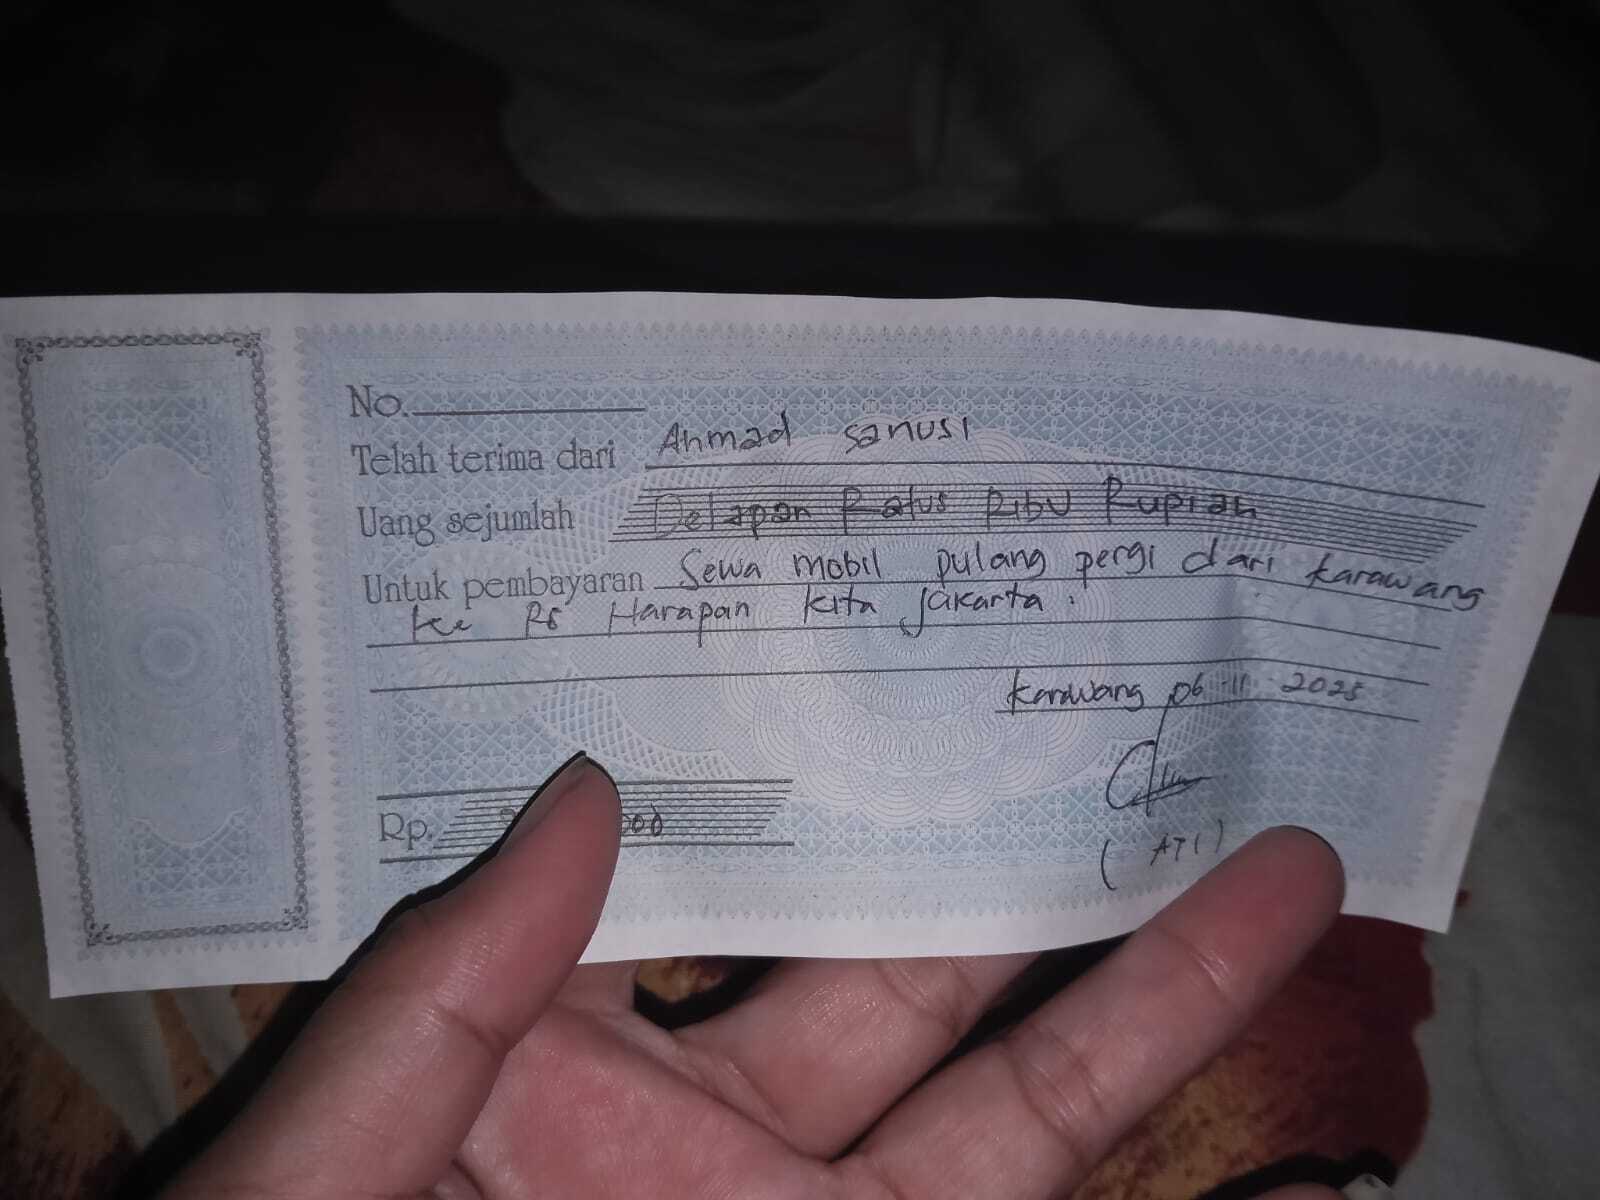 No.
Telah terima dari Ahmad Sanusi
Uang sejumlah Delapan Ratus Ribu Rupiah
Untuk pembayaran Sewa mobil pulang pergi dari Karawang
ke RS Harapan Kita Jakarta.
Karawang 06-11-2025
Rp. 000
(ATI)